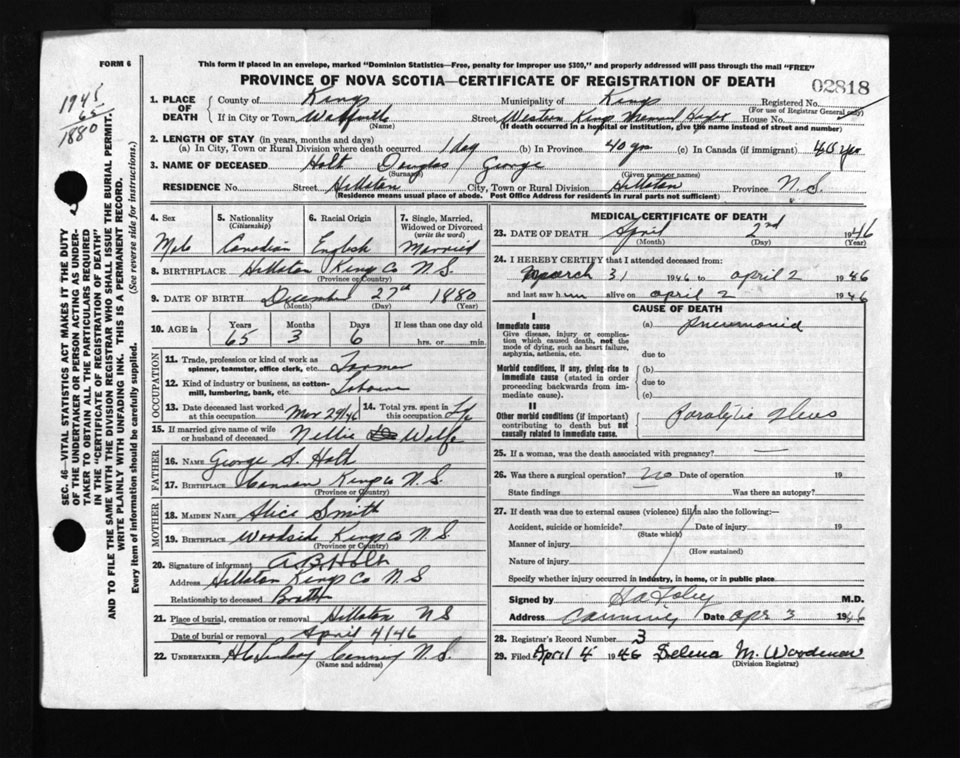 FORM 6
This form if placed in an envelope, marked "Dominion Statistics—Free, penalty for improper use $300," and properly addressed will pass through the mail "FREE"
PROVINCE OF NOVA SCOTIA—CERTIFICATE OF REGISTRATION OF DEATH
02818
1945
65
1880
1. PLACE OF DEATH { County of Kings Municipality of Kings Registered No.
(For use of Registrar General only)
If in City or Town Wolfville (Name) Street, Western Kings Memorial House No.
(If death occurred in a hospital or institution, give the name instead of street and number)
2. LENGTH OF STAY (in years, months and days)
(a) In City, Town or Rural Division where death occurred 1 day (b) In Province 40 yrs (c) In Canada (if immigrant) 40 yrs
3. NAME OF DECEASED Holt Douglas George
(Surname) (Given name or names)
RESIDENCE No. Street Hillaton City, Town or Rural Division Hillaton Province N.S.
(Residence means usual place of abode. Post Office Address for residents in rural parts not sufficient)
4. Sex Male
5. Nationality (Citizenship) Canadian
6. Racial Origin English
7. Single, Married, Widowed or Divorced (write the word) Married
8. BIRTHPLACE Hillaton Kings Co N.S.
(Province or Country)
9. DATE OF BIRTH December 27th 1880
(Month) (Day) (Year)
10. AGE in Years 65 Months 3 Days 6 If less than one day old hrs. or min.
OCCUPATION
11. Trade, profession or kind of work as spinner, teamster, office clerk, etc. Farmer
12. Kind of industry or business, as cotton-mill, lumbering, bank, etc.
13. Date deceased last worked at this occupation Mar 29/46
14. Total yrs. spent in this occupation Life
15. If married give name of wife or husband of deceased Nellie Wolfe
FATHER
16. NAME George A. Holt
17. BIRTHPLACE Kings Co N.S.
(Province or Country)
MOTHER
18. MAIDEN NAME Alice Smith
19. BIRTHPLACE Woodside Kings Co N.S.
(Province or Country)
20. Signature of informant A.B. Holt
Address Hillaton Kings Co N.S
Relationship to deceased Brother
21. Place of burial, cremation or removal Hillaton NS
Date of burial or removal April 4/46
22. UNDERTAKER H C Lindsay Canning N.S.
(Name and address)
MEDICAL CERTIFICATE OF DEATH
23. DATE OF DEATH April 2nd 1946
(Month) (Day) (Year)
24. I HEREBY CERTIFY that I attended deceased from:
March 31 1946 to april 2 1946
and last saw him alive on april 2 1946
CAUSE OF DEATH
I
Immediate cause
Give disease, injury or complication which caused death, not the mode of dying, such as heart failure, asphyxia, asthenia, etc.
(a) Pneumonia
due to
Morbid conditions, if any, giving rise to immediate cause (stated in order proceeding backwards from immediate cause).
(b)
due to
(c)
II
Other morbid conditions (if important) contributing to death but not causally related to immediate cause.
Paralytic Ileus
25. If a woman, was the death associated with pregnancy? —
26. Was there a surgical operation? no Date of operation 19
State findings Was there an autopsy?
27. If death was due to external causes (violence) fill in also the following:—
Accident, suicide or homicide? Date of injury 19
(State which)
Manner of injury
(How sustained)
Nature of injury
Specify whether injury occurred in industry, in home, or in public place
Signed by M.D.
Address Canning Date apr 3 1946
28. Registrar's Record Number 3
29. Filed April 4 1946 Selena M. Woodman
(Division Registrar)
SEC. 46—VITAL STATISTICS ACT MAKES IT THE DUTY
OF THE UNDERTAKER OR PERSON ACTING AS UNDER-
TAKER TO OBTAIN ALL THE PARTICULARS REQUIRED
IN THE "CERTIFICATE OF REGISTRATION OF DEATH"
AND TO FILE THE SAME WITH THE DIVISION REGISTRAR WHO SHALL ISSUE THE BURIAL PERMIT.
WRITE PLAINLY WITH UNFADING INK. THIS IS A PERMANENT RECORD.
Every item of information should be carefully supplied. (See reverse side for instructions.)